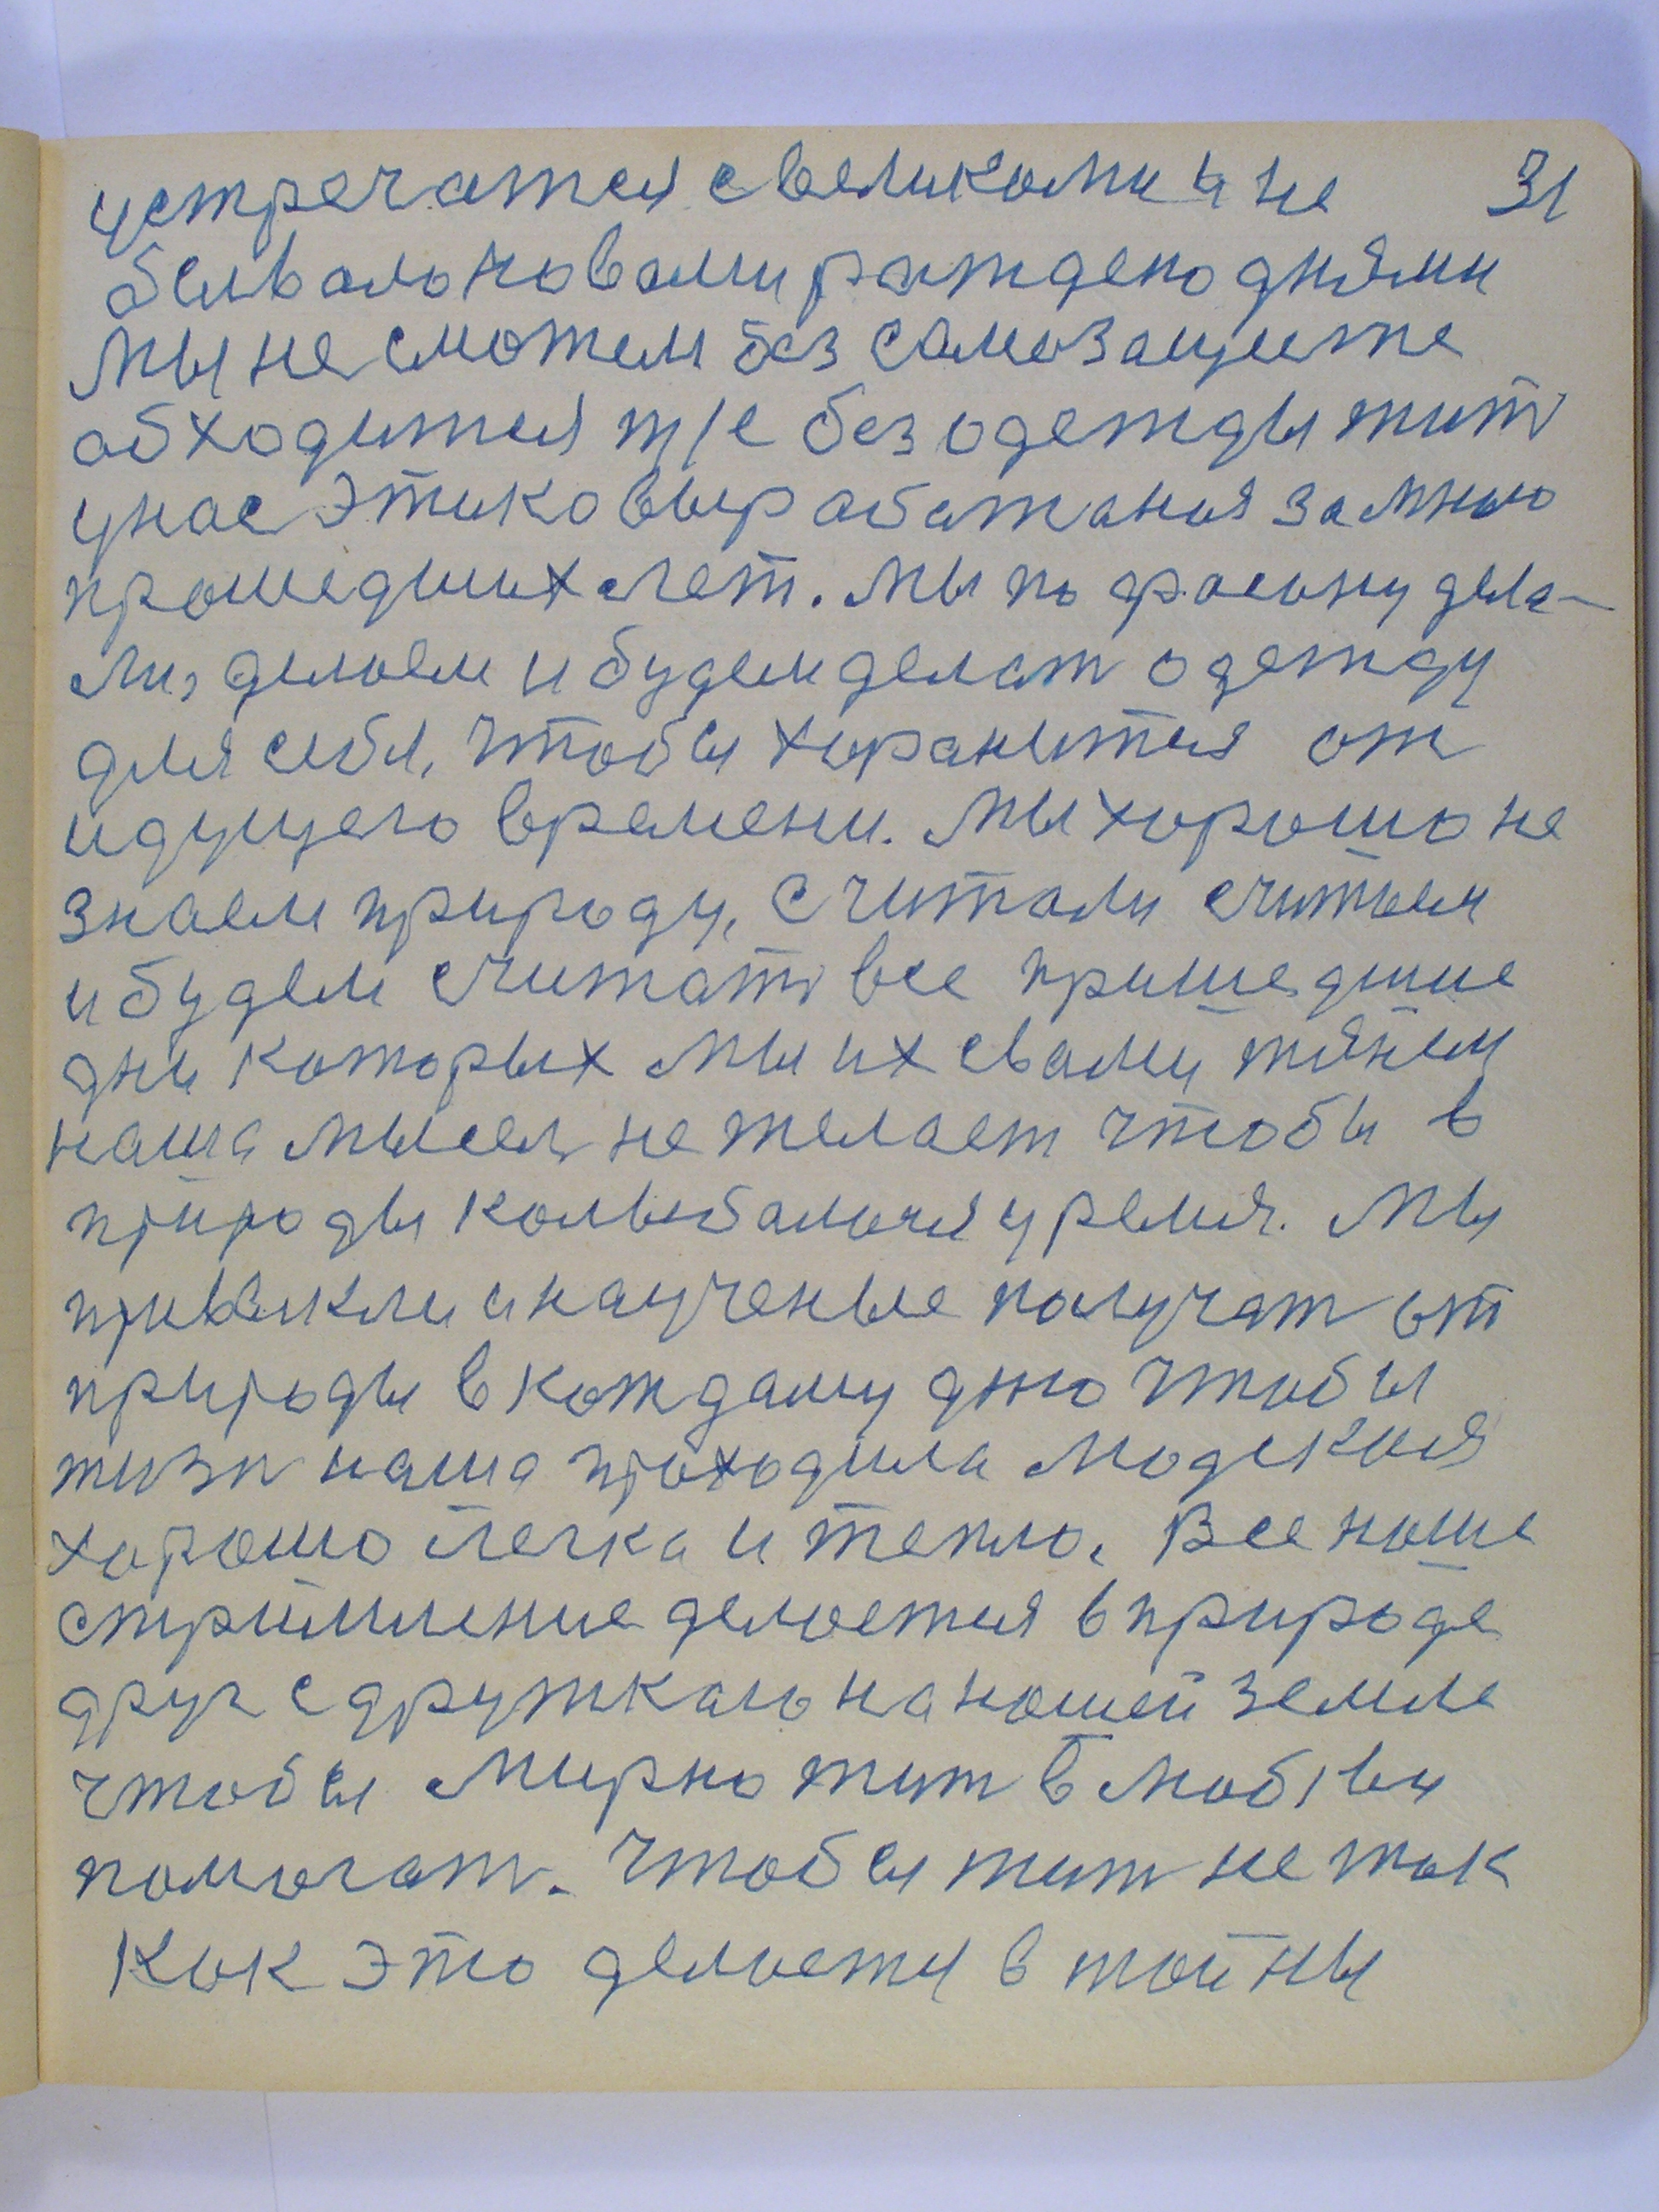 устречатся с великоми и не 31
бывало новами рождено днями
мы не сможем без самозащите
обходится т/е без одежды жить
унас этико выработаная замною
прошедших лет. Мы по фасону дела-
ли, делоем и будем делат одежду
для себя, чтобы хоранится от
идущего времени. Мы хорошо не
знаем природу, считали считаем
и будем считать все пришедшие
дни которых мы их свами тянем
наша мысел не желает чтобы в
природы колыбалося уремя. Мы
привыкли и наученые получат от
природы в кождому дню чтобы
жизн наша проходила людская
хорошо легка и тепло. Все наше
стримление делоется в природе
друг с дружкаю на нашей земле
чтобы мирно жит в любви
помогат. Чтобы жит не так
Как это делоету в тойны